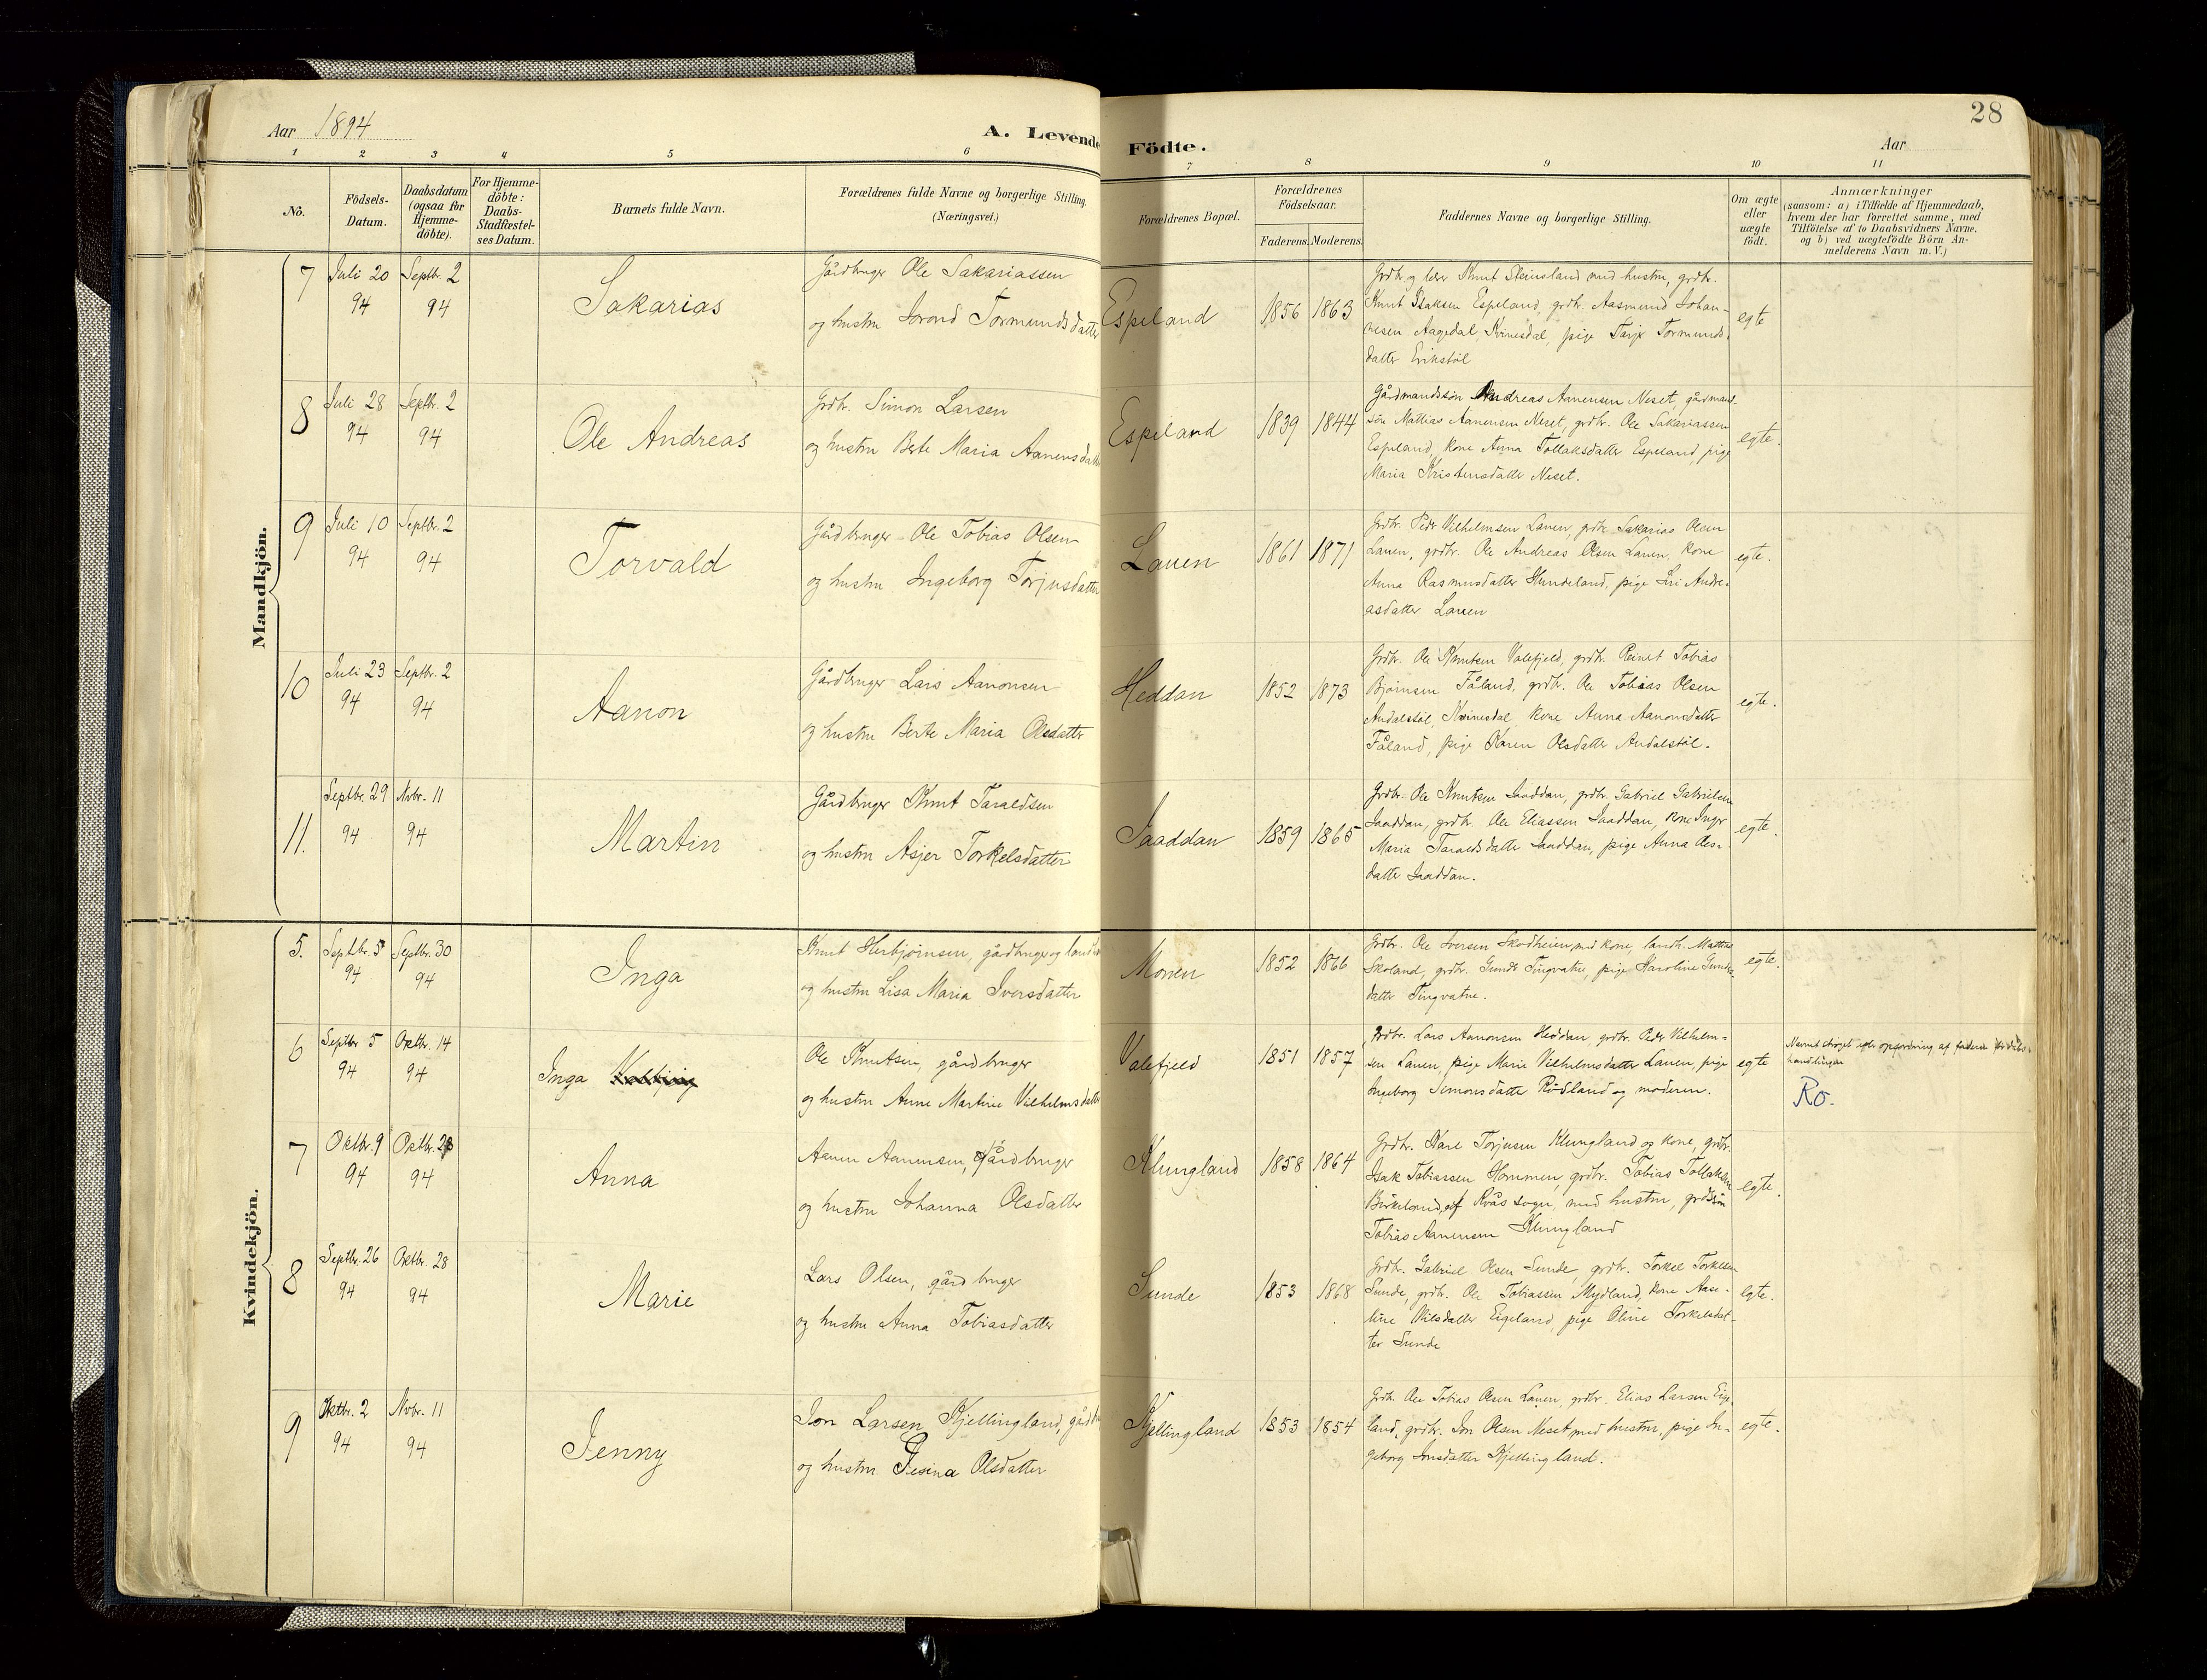 28
Aar 1894
A. Levende Födte.
Aar
1 2 3 4 5 6 7 8 9 10 11
No.
Födsels-Datum.
Daabsdatum (ogsaa for Hjemme-döbte).
For Hjemme-döbte: Daabs-Stadfæstel-ses Datum.
Barnets fulde Navn.
Forældrenes fulde Navne og borgerlige Stilling. (Næringsvei.)
Forældrenes Bopæl.
Forældrenes Födselsaar.
Faderens. Moderens.
Faddernes Navne og borgerlige Stilling.
Om ægte eller uægte födt.
Anmærkninger
(saasom: a) i Tilfælde af Hjemmedaab,
hvem der har forrettet samme, med
Tilföielse af to Daabsvidners Navne,
og b) ved uægtefödte Börn An-
melderens Navn m. V.)
Mandkjön.
7 Juli 20 94 Septbr. 2 94
Sakarias
Gårdbruger Ole Sakariassen
og hustru Jorond Tormundsdatter
Espeland 1856 1863
Grdbr. og lærer Knut Steinsland med hustru, grdbr.
Knut Isaksen Espeland, grdbr. Aasmund Johan-
nesen Aagedal, Kvinesdal, pige Tarje Tormunds-
datter Erikstøl
egte
8 Juli 28 94 Septbr. 2 94
Ole Andreas
Grdbr. Simon Larsen
og hustru Berte Maria Aanensdatter
Espeland 1839 1844
Gårdmandssøn Andreas Aanensen Neset, gårdmand-
søn Mattias Aanensen Neset, grdbr. Ole Sakariassen
Espeland, kone Anna Tollaksdatter Espeland, pige
Maria Kristensdatter Neset.
egte.
9 Juli 10 94 Septbr. 2 94
Torvald
Gårdbruger Ole Tobias Olsen
og hustru Ingeborg Torjusdatter
Lauen 1861 1871
Grdbr. Peder Vilhelmsen Lauen, grdbr. Sakarias Olsen
Lauen, grdbr. Ole Andreas Olsen Lauen, kone
Anna Rasmusdatter Hundeland, pige Siri Andre-
asdatter Lauen
egte.
10 Juli 23 94 Septbr. 2 94
Aanon
Gårdbruger Lars Aanonsen
og hustru Berte Maria Olsdatter
Heddan 1852 1873
Grdbr. Ole Knutsen Valefjeld, grdbr. Reinert Tobias
Bjørnsen Fåland, grdbr. Ole Tobias Olsen
Andalstøl, Kvinesdal, kone Anna Aanonsdatter
Fåland, pige Karen Olsdatter Andalstøl.
egte.
11. Septbr. 29 94 Nvbr. 11 94
Martin
Gårdbruger Knut Taraldsen
og hustru Asjer Torkelsdatter
Saaddan 1859 1865
Grdbr. Ole Knutsen Saaddan, grdbr. Gabriel Gabrielsen
Saaddan, grdbr. Ole Eliassen Saaddan, kone Inger
Maria Taraldsdatter Saaddan, pige Anna Ols-
datter Saaddan.
egte.
Kvindekjön.
5. Septbr. 5 94 Septbr. 30 94
Inga
Knut Herbjørnsen, gårdbruger og
og hustru Lisa Maria Iversdatter
Moren 1852 1866
Grdbr. Ole Iversen Skodheien med kone, landh.
Skoland, grdbr. Gunder Tingvatne, pige Karoline Gunders-
datter Tingvatne.
egte.
6 Septbr 5 94 Oktbr. 14 94
Inga
Ole Knutsen, gårdbruger
og hustru Anne Martine Vilhelmsdatter
Valefjeld 1851 1857
Grdbr. Lars Aanonsen Heddan, grdbr. Peder Vilhelm-
sen Lauen, pige Marie Vilhelmsdatter Lauen, pige
Ingeborg Simonsdatter Rødland og moderen.
egte
Navnet strøget efter opfordring af faderen
handlingen
Ro.
7 Oktbr. 9 94 Oktbr. 28 94
Anna
Aanen Aanensen, gårdbruger
og hustru Johanna Olsdatter
Klungland 1858 1864
Grdbr. Karl Torjusen Klungland og kone, grdbr.
Isak Tobiassen Hommen, grdbr. Tobias Tollaksen
Birkeland, af Kvås sogn, med hustru, grdbrsøn
Tobias Aanensen Klungland
egte.
8 Septbr. 26 94 Oktbr. 28 94
Marie
Lars Olsen, gårdbruger
og hustru Anna Tobiasdatter
Sunde 1853 1868
Grdbr. Gabriel Olsen Sunde, grdbr. Torkel Torkelsen
Sunde, grdbr. Ole Tobiassen Mydland, kone Aase-
line Nilsdatter Eigeland, pige Oline Torkelsdat-
ter Sunde
egte.
9 Oktbr. 2 94 Nvbr. 11 94
Jenny
Jon Larsen Kjellingland,
og hustru Gesina Olsdatter
Kjellingland 1853 1854
Grdbr. Ole Tobias Olsen Lauen, grdbr. Elias Larsen Eige-
land, grdbr. Jon Olsen Neset med hustru, pige In-
geborg Jonsdatter Kjellingland.
egte.